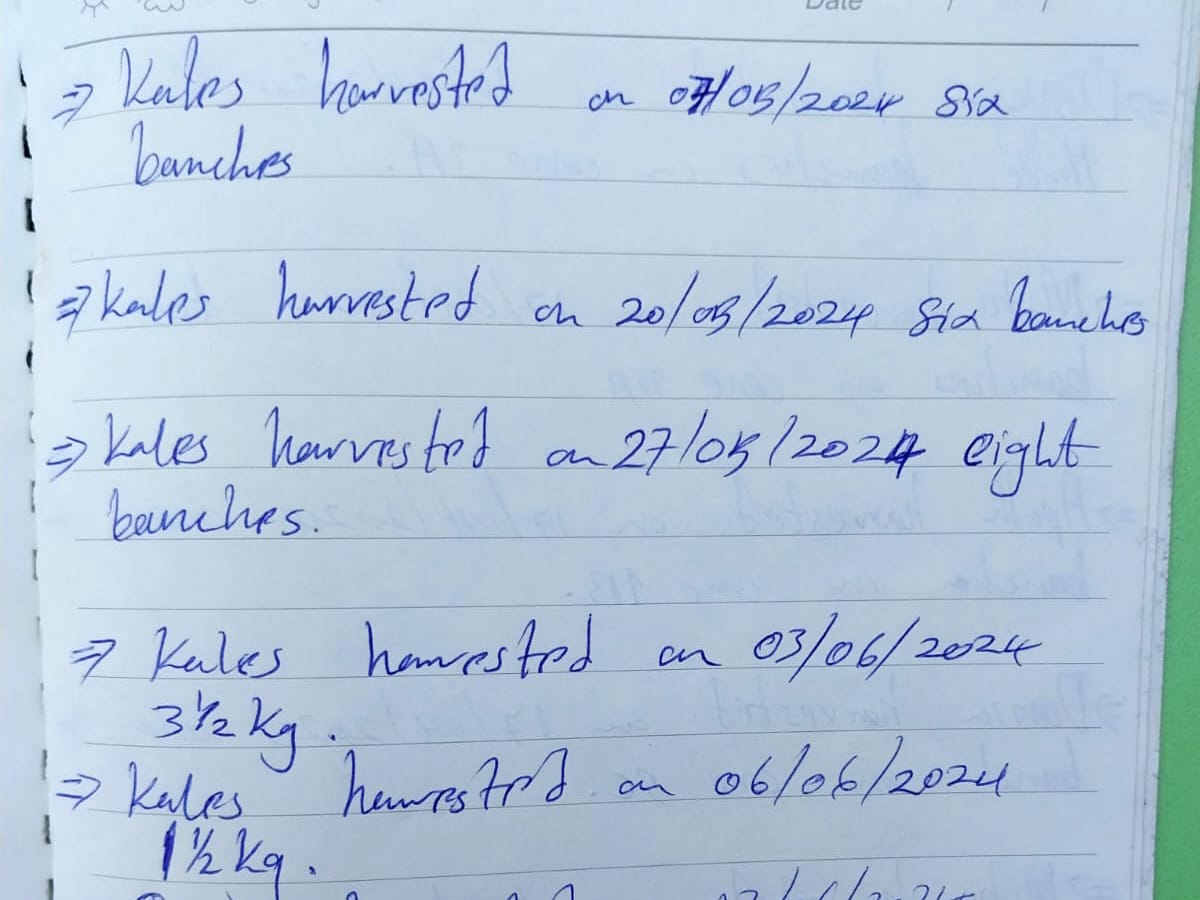 Date / /
⇒ Kales harvested on 07/05/2024 Six
banches
⇒ Kales harvested on 20/05/2024 Six banches
⇒ Kales harvested on 27/05/2024 eight
banches.
⇒ Kales harvested on 03/06/2024
3 1/2 kg.
⇒ Kales harvested on 06/06/2024
1 1/2 kg.